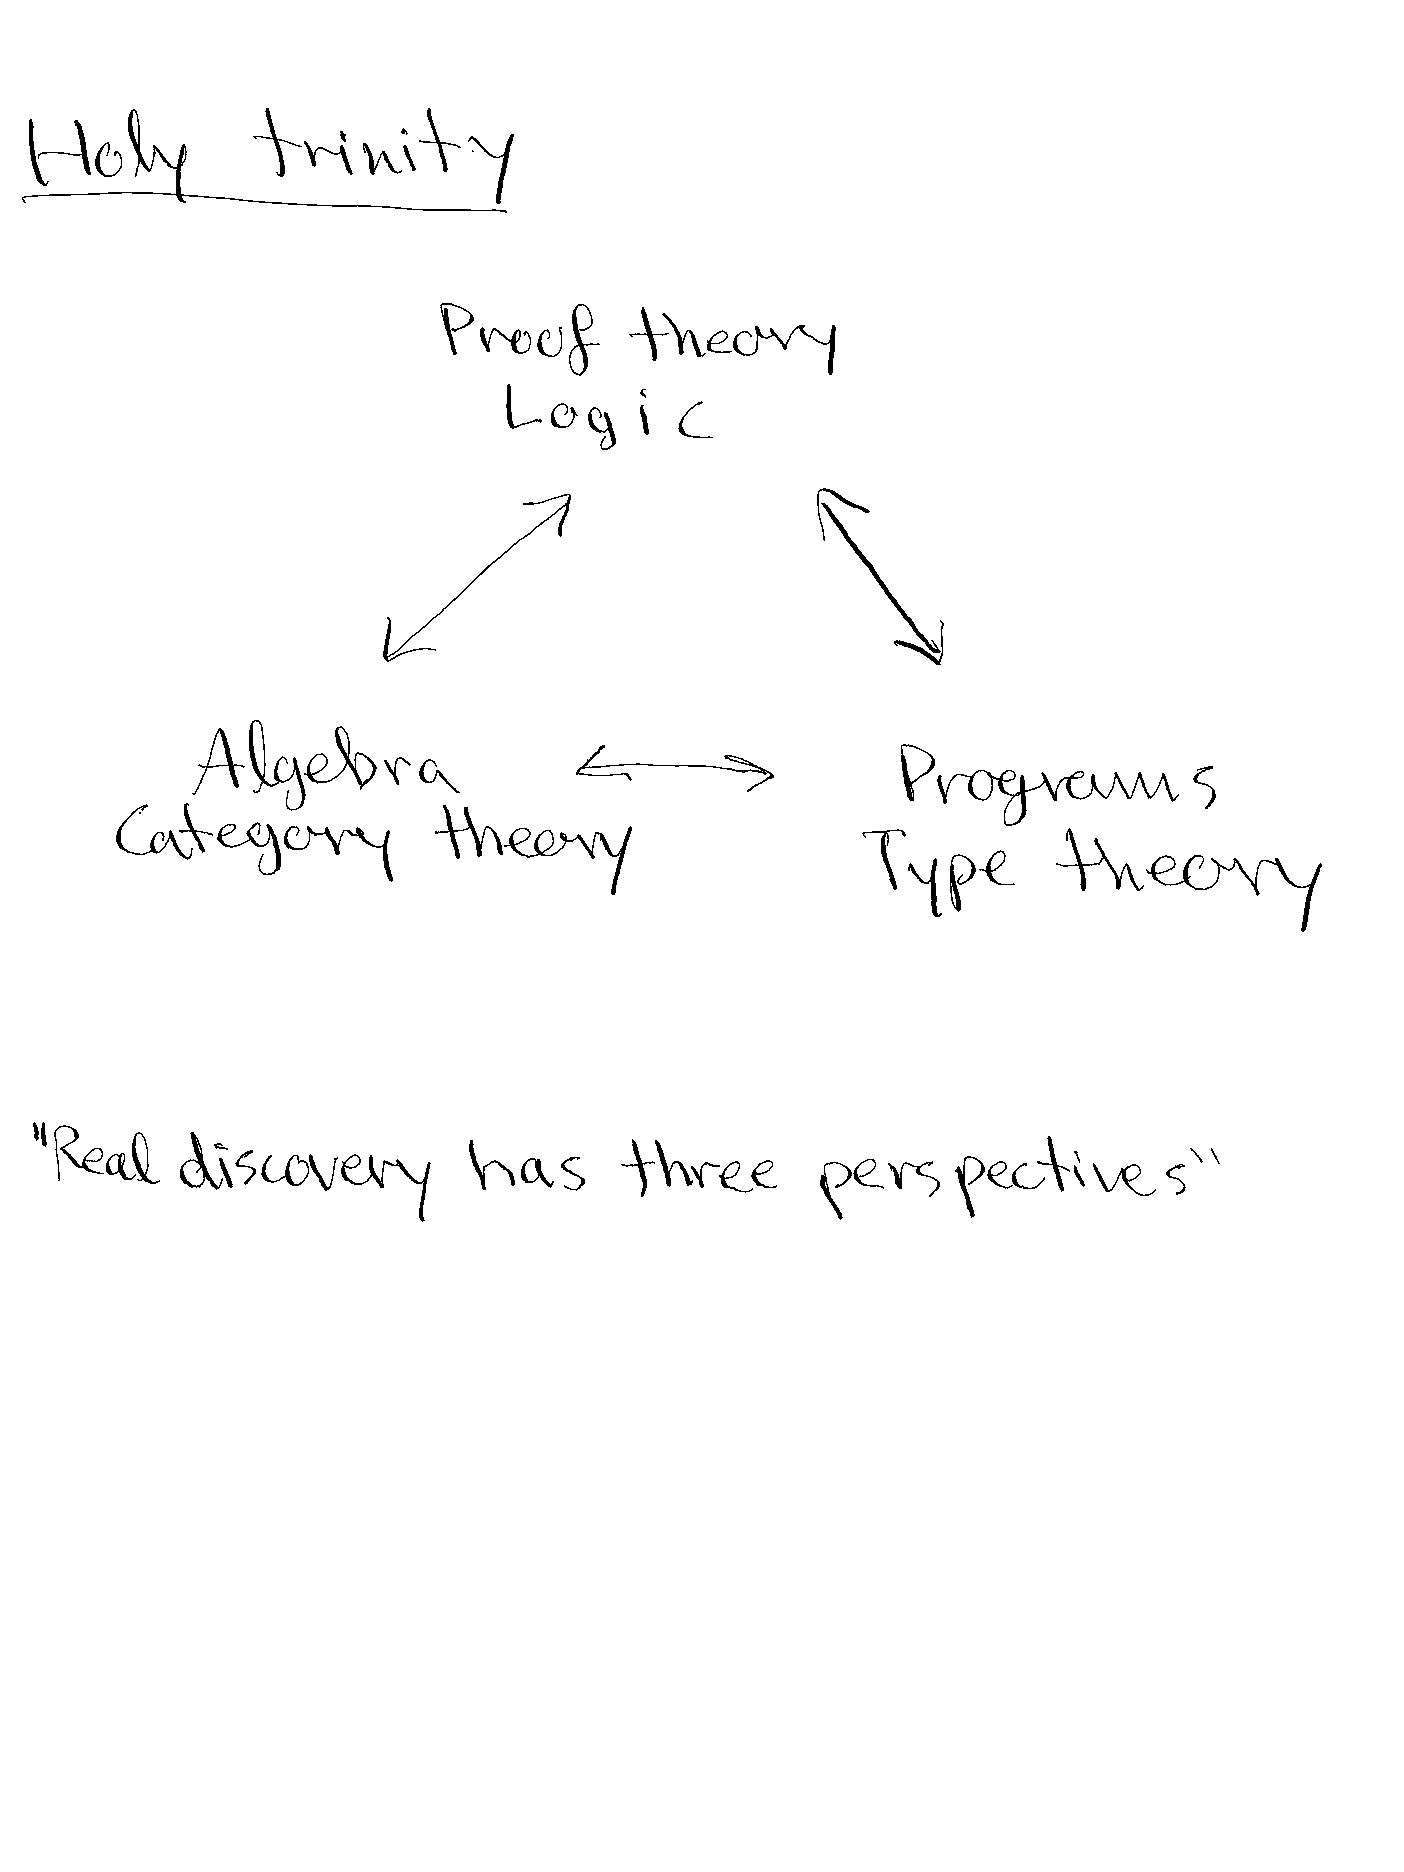 Holy trinity
Proof theory
Logic
Algebra
Category theory
Programs
Type theory
"Real discovery has three perspectives"